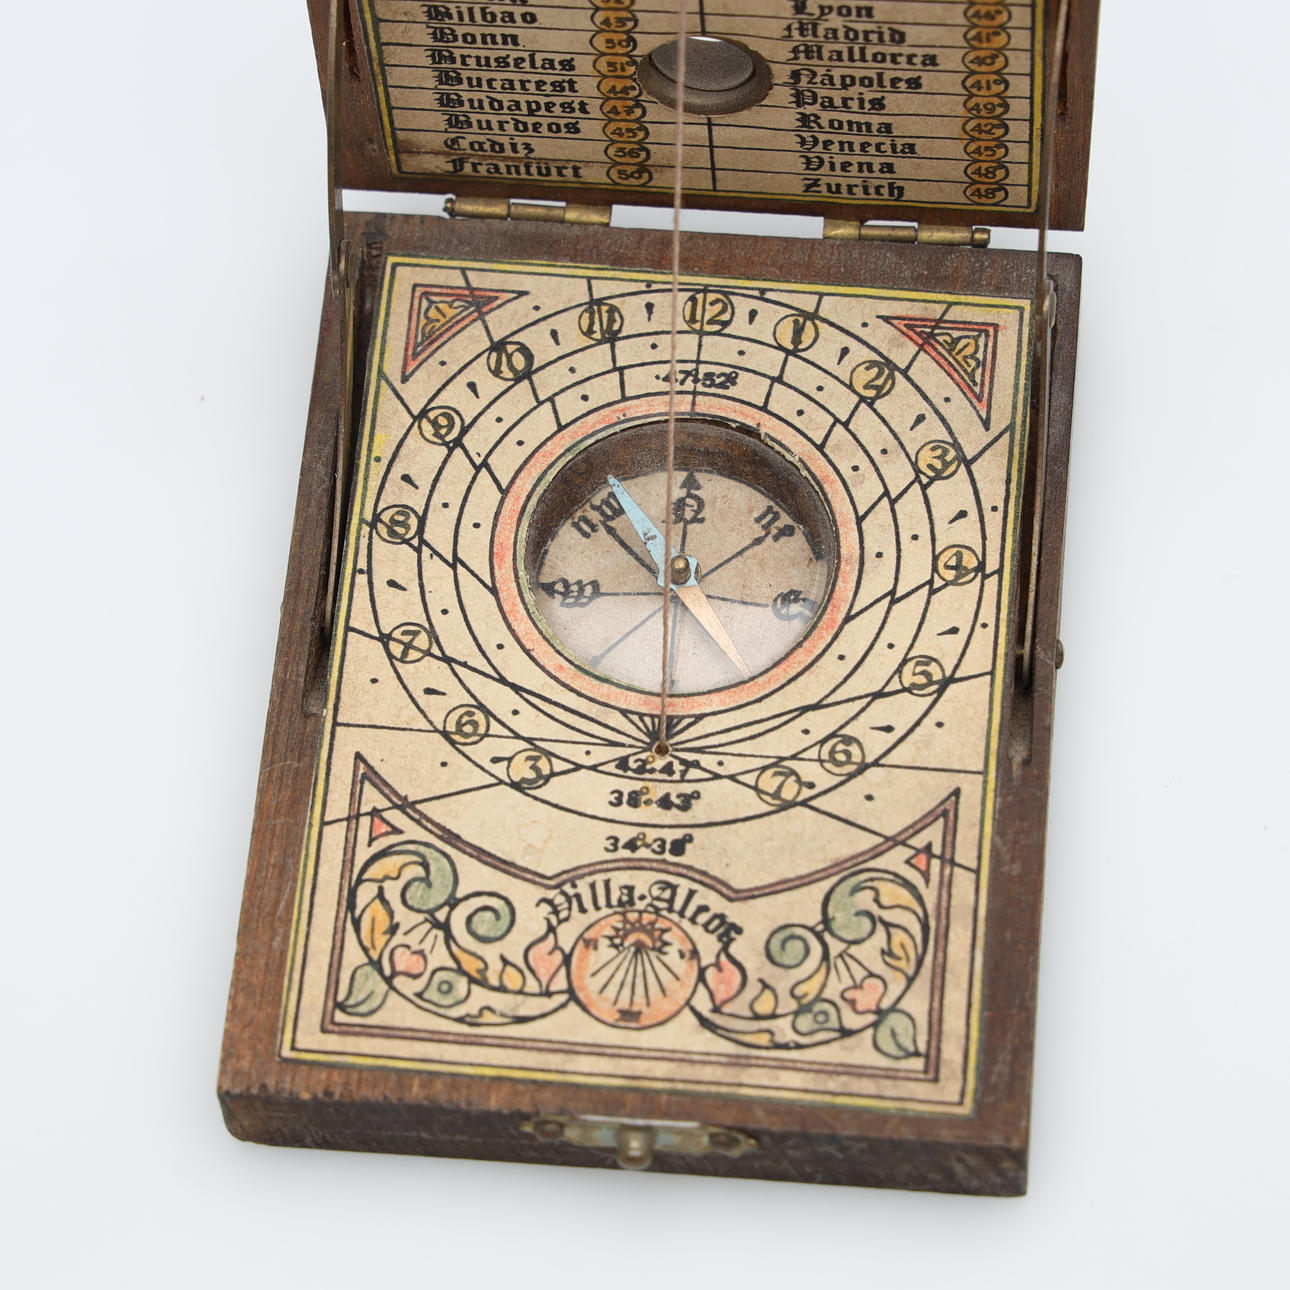 Bilbao 43°
Bonn 50°
Bruselas 51°
Bucarest 44°
Budapest 47°
Burdeos 45°
Cadiz 36°
Franfürt 50°
Lyon 46°
Madrid 41°
Mallorca 40°
Nápoles 41°
Paris 49°
Roma 42°
Venecia 45°
Viena 48°
Zurich 48°
10 11 12 1 2
47°·52°
9 3
NW N NE
8 4
W E
7 5
6 6
3 7
43·47°
38°·43°
34°·38°
Villa·Alcor